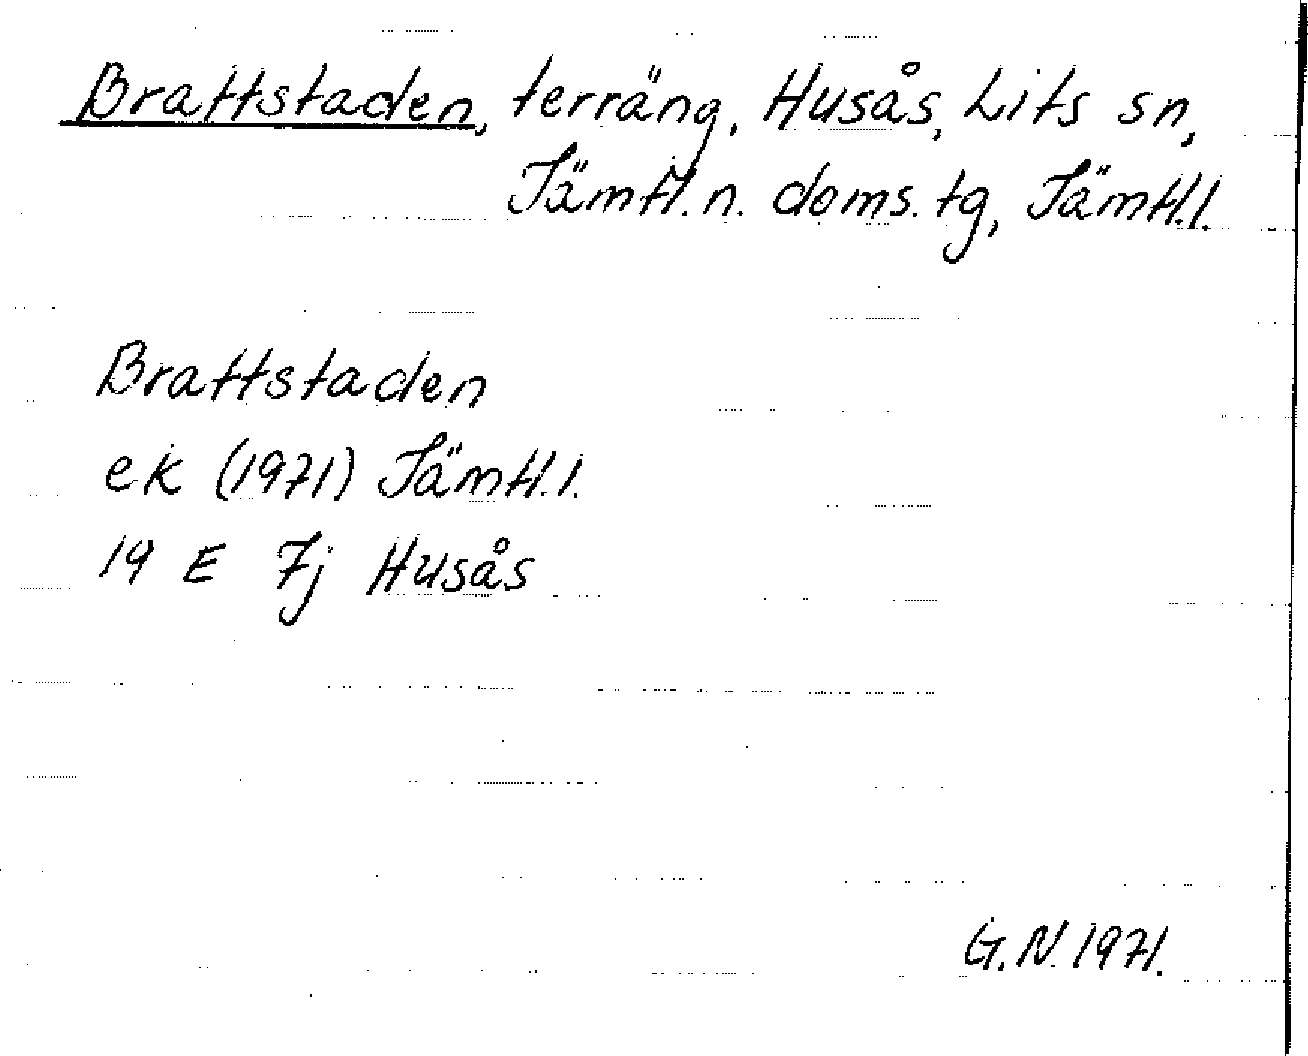 Brattstaden, terräng, Husås, Lits sn,
Jämtl. n. doms. tg, Jämtl. l.
Brattstaden
ek (1971) Jämtl. l.
19 E 7j Husås
G. N. 1971.